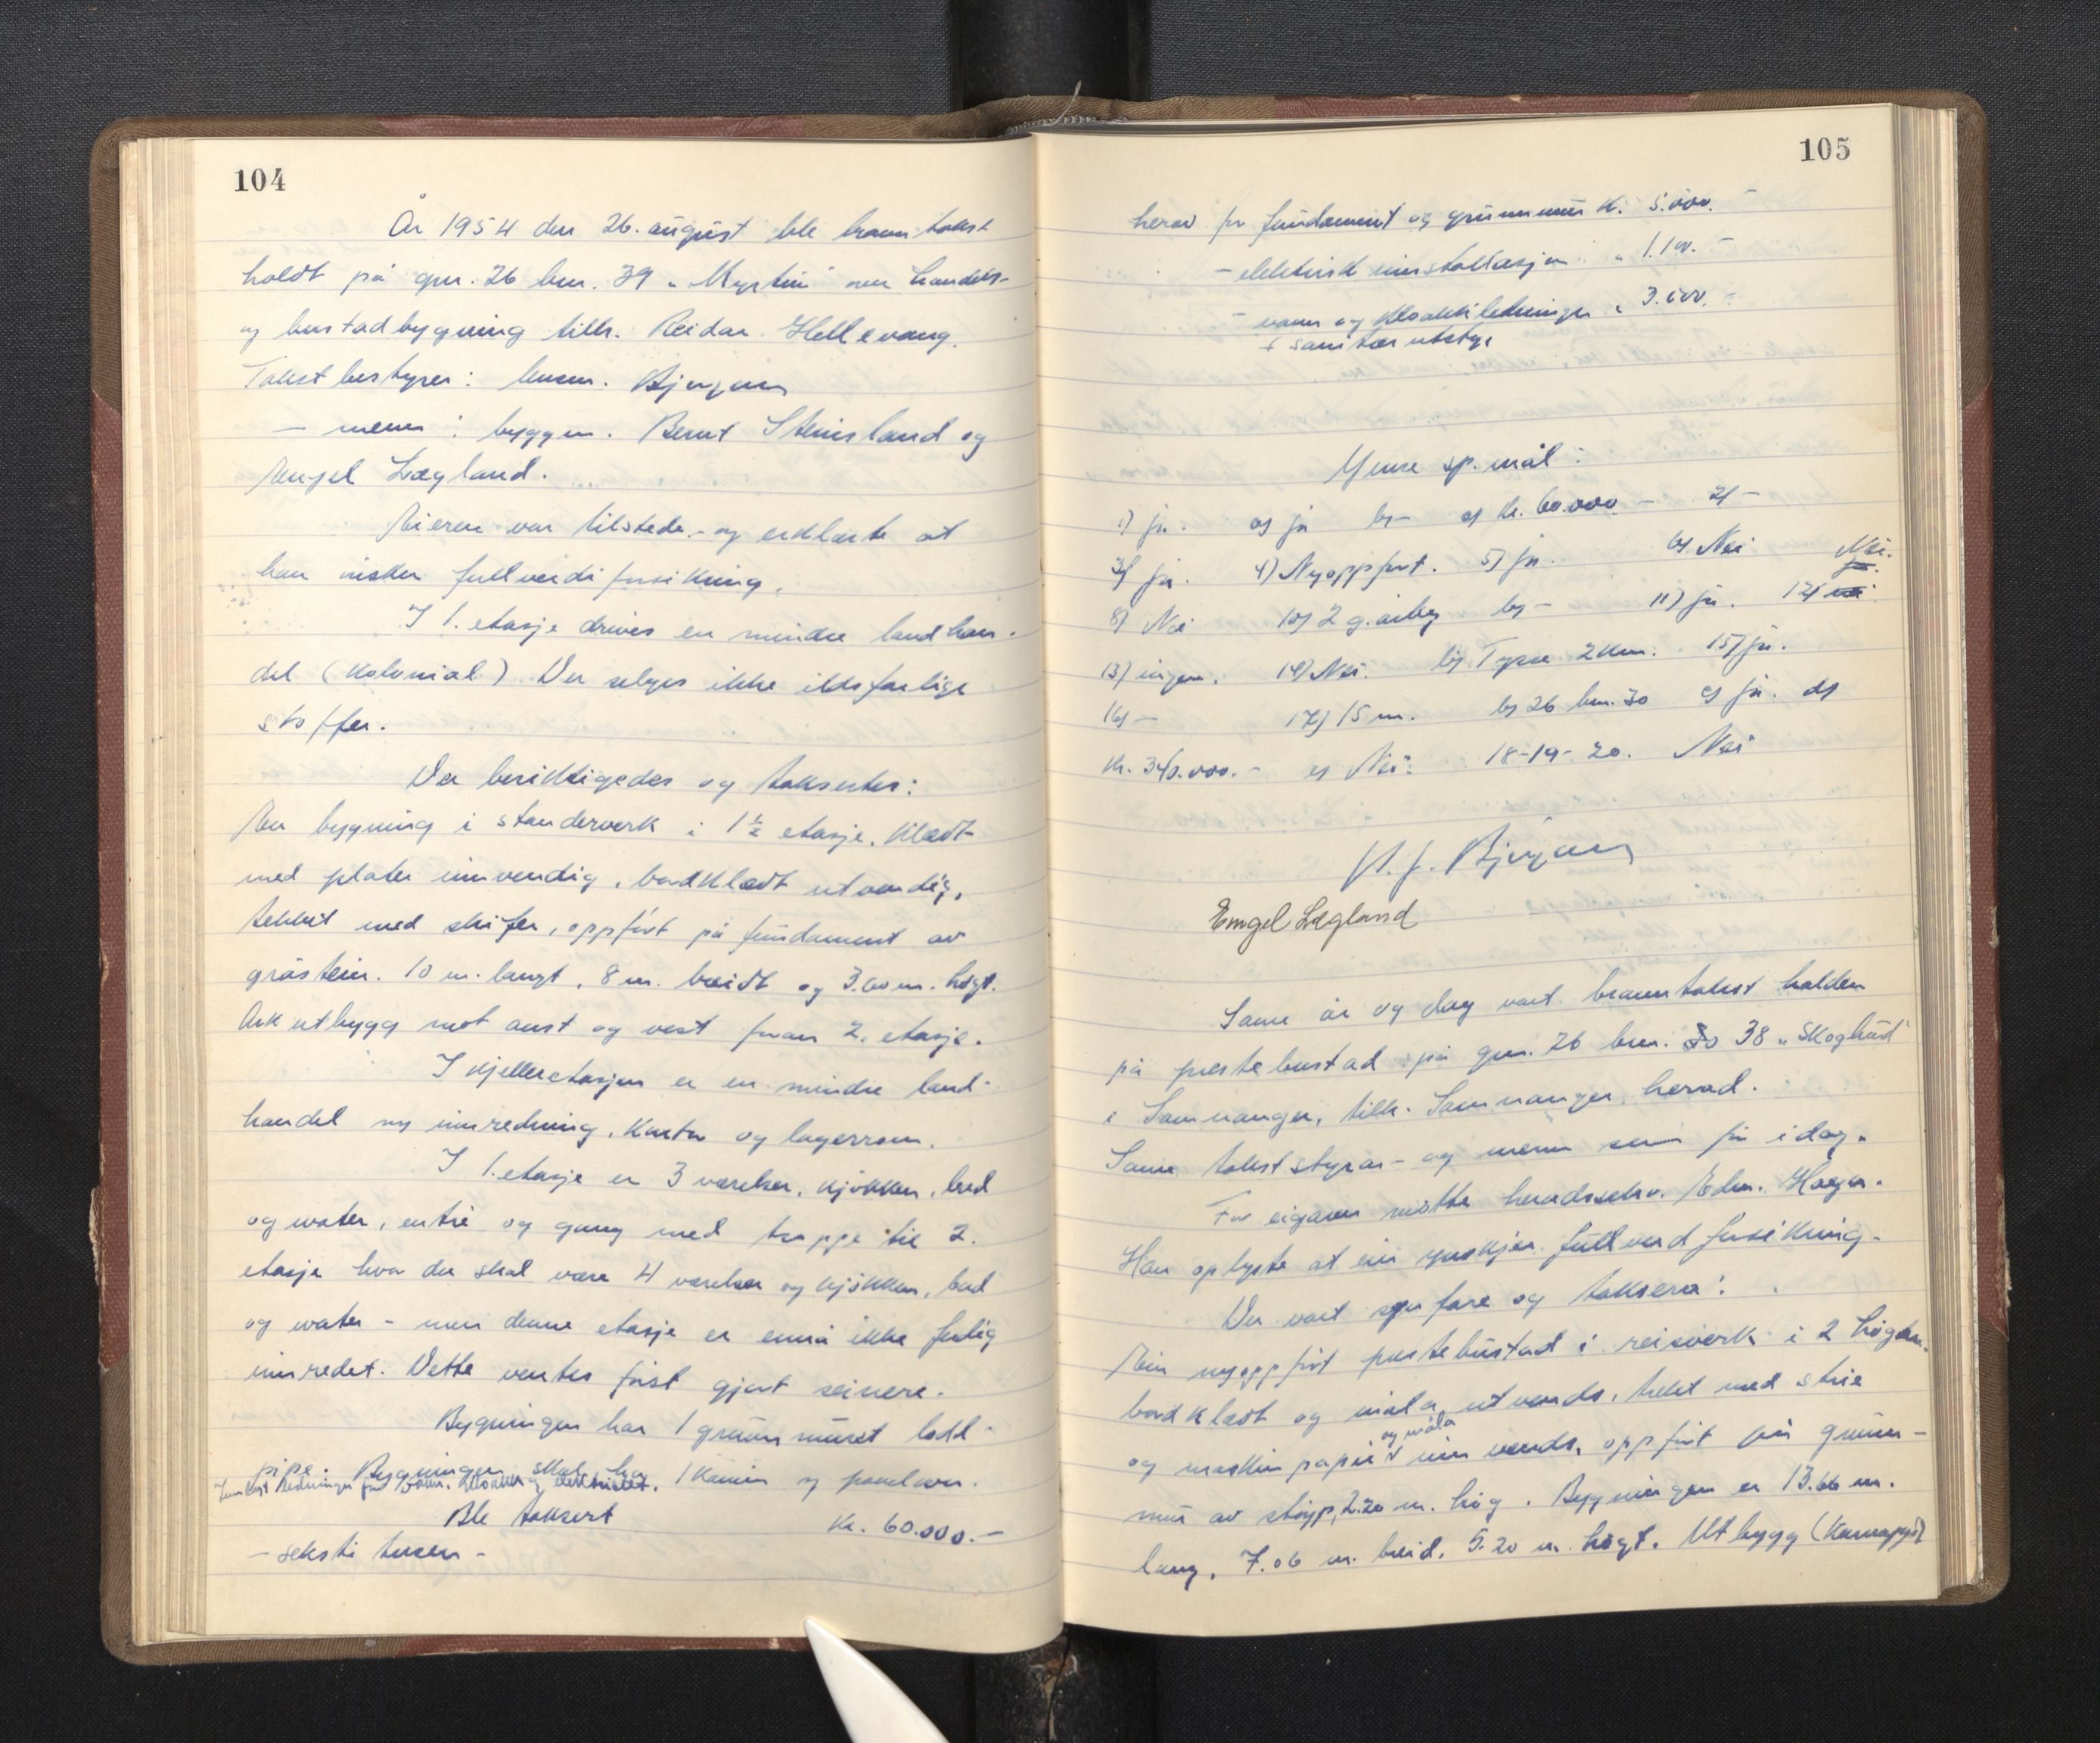 104
År 1954 den 26. august ble branntakst
holdt på gnr. 26 bnr. 39 „Myrtun" over handels-
og bustadbygning tilh. Reidar Hellevang.
Takstbestyrer: lensm. Bjergum
— menn: byggm. Bernt Steinsland og
Engel Lægland.
Eieren var tilstede - og erklærte at
han ønsker fullverdiforsikring.
I 1. etasje drives en mindre landhan-
del (Kolonial) Der selges ikke ildsfarlige
stoffer.
Der besiktigedes og taksertes:
En bygning i standerverk i 1 1/2 etasje. Klædt
med plater innvendig, bordklædt utvendig,
tekket med skifer, oppført på fundament av
gråstein. 10 m. langt, 8 m. breidt og 3.60 m. høgt.
Ark utbygg mot aust og vest foran 2. etasje.
I kjelleretasjen er en mindre land-
handel ny innredning, kontor og lagerrom.
I 1. etasje er 3 værelser, kjøkken, bad
og water, entré og gang med trappe til 2.
etasje hvor der skal være 4 værelser og kjøkken, bad
og water - men denne etasje er ennå ikke ferdig
innredet. Dette ventes først gjort seinere.
Bygningen har 1 grunnmuret
pipe. Bygningen skal ha 1 kamin og
ledninger for vann, kloakk og elektrisitet.
Ble taksert Kr. 60.000.-
- seksti tusen -
105
herav for fundament og grunnmur kr. 5.000.-
- elektrisk innstallasjon „ 1.100.-
- vann og kloakkledninger „ 3.000.-
+ sanitær utstyr
Ymse sp.mål:
1) ja. a) ja b) - c) Kr. 60.000 - 2) -
3) ja. 4) Nyoppført. 5) ja. 6) Nei Nei.
8) Nei 10) 2 g. årleg b) - 11) ja. 12) nei ja.
13) ingen. 14) Nei. b) Tysse 2 km. 15) ja.
16) - 17) 15 m. b) 26 bnr. 30 c) ja. d)
Kr. 340.000.- e) Nei. 18-19-20. Nei
Bjergum
Engel Lægland
Same år og dag vart branntakst halden
på prestebustad på gnr. 26 bnr. 30 38 „Skoglund"
i Samnanger, tilh. Samnanger herad.
Same takststyrar- og menn som før i dag.
For eigaren møtte heradsskr. Edm. Haga.
Han oplyste at ein ynskjer fullverd forsikring.
Der vart synfare og taksera:
Ein nyoppført prestebustad i reisverk i 2 høgder.
bordklædt og måla utvendes, tekt med skie
og maskinpapir og måla innvendes, oppført på grunn-
mur av støyp, 2.20 m. høg. Bygningen er 13.66 m.
lang, 7.06 m. breid, 5.20 m. høgt. Utbygg (Karnapp)